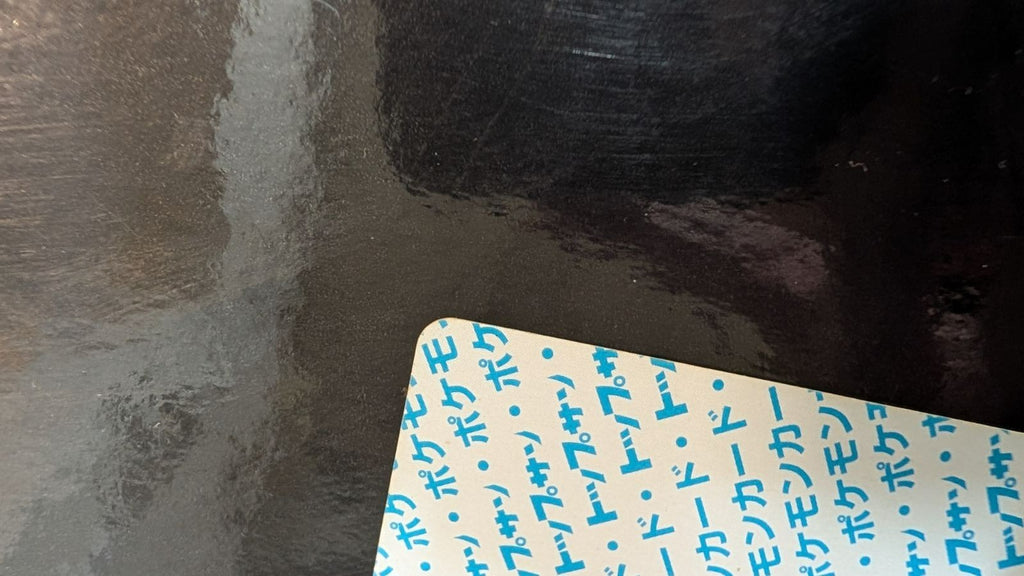 ポケモ
・ポケモ
サン・ポケモ
プサン・ポケ
トップサン・
・トップサ
ード・ト
カード・
モンカー
ポケモン
・ポケモ
サン・ポ
プサン
トップサ